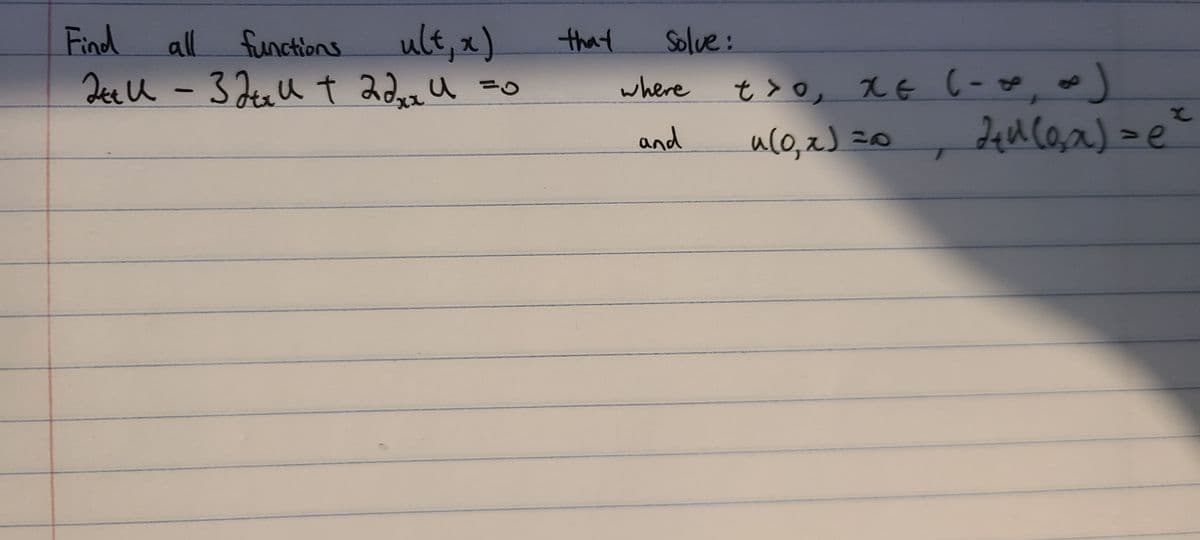 Find all functions u(t,x) that Solve:
∂ttu - 3∂txu + 2∂xxu = 0 where t > 0, x ∈ (-∞, ∞)
and u(0,x) = 0 , ∂tu(0,x) = e^x